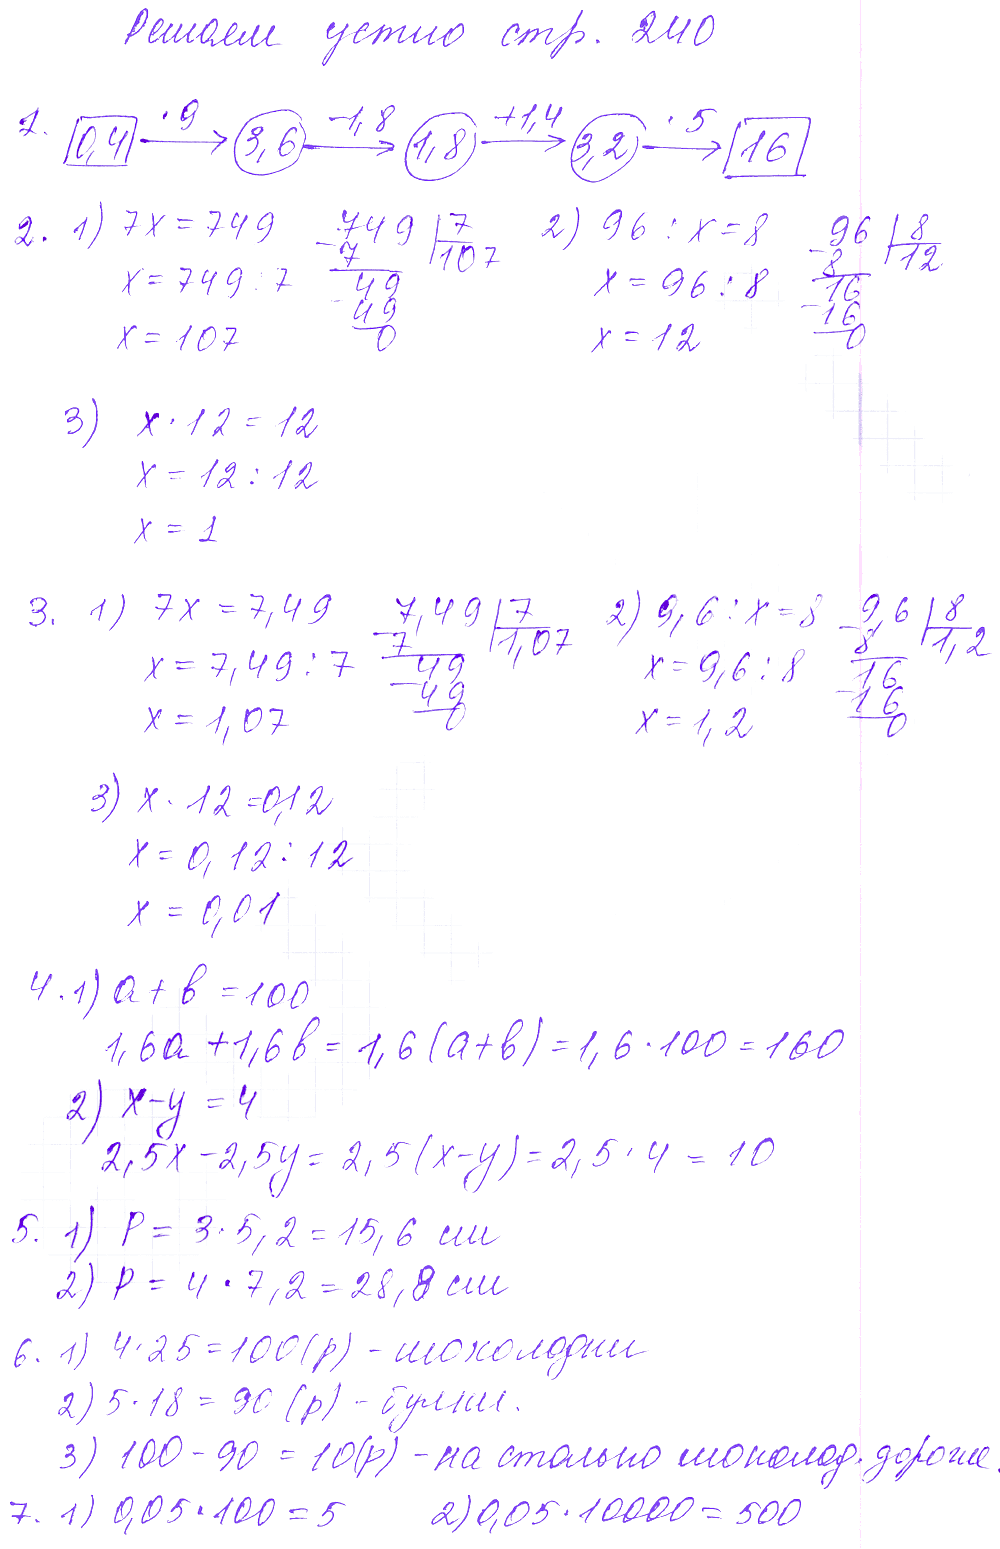 Решаем устно стр. 240
1. 0,4 ·9 → 3,6 -1,8 → 1,8 +1,4 → 3,2 ·5 → 16
2. 1) 7x = 749 749 | 7 2) 96 : x = 8 96 | 8
x = 749 : 7 - 7 107 x = 96 : 8 - 8 12
49 16
x = 107 - 49 x = 12 - 16
0 0
3) x · 12 = 12
x = 12 : 12
x = 1
3. 1) 7x = 7,49 7,49 | 7 2) 9,6 : x = 8 9,6 | 8
x = 7,49 : 7 - 7 1,07 x = 9,6 : 8 - 8 1,2
49 16
x = 1,07 - 49 x = 1,2 - 16
0 0
3) x · 12 = 0,12
x = 0,12 : 12
x = 0,01
4. 1) a + b = 100
1,6a + 1,6b = 1,6(a+b) = 1,6 · 100 = 160
2) x - y = 4
2,5x - 2,5y = 2,5(x-y) = 2,5 · 4 = 10
5. 1) P = 3 · 5,2 = 15,6 см
2) P = 4 · 7,2 = 28,8 см
6. 1) 4 · 25 = 100 (р) - шоколадки
2) 5 · 18 = 90 (р) - булки.
3) 100 - 90 = 10(р) - на столько шоколад. дороже.
7. 1) 0,05 · 100 = 5 2) 0,05 · 10000 = 500